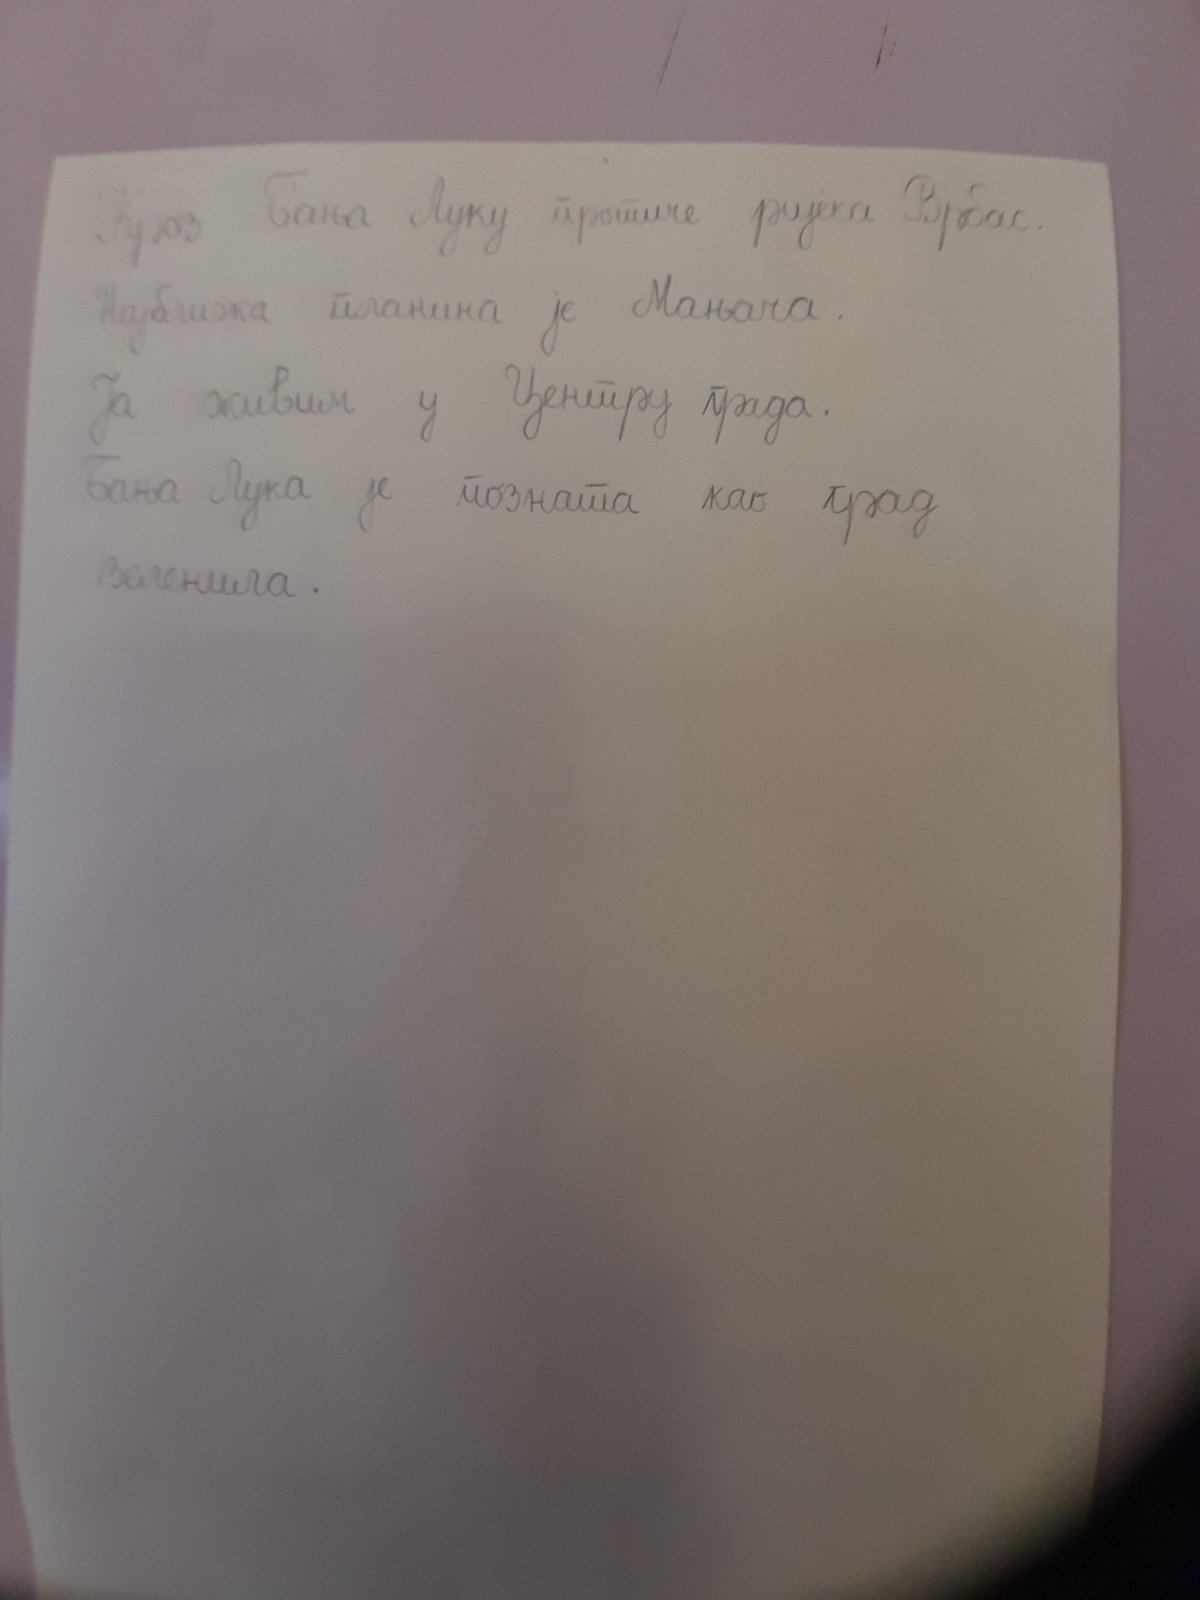 Кроз Бања Луку протиче ријека Врбас.
Најближа планина је Мањача.
Ја живим у Центру града.
Бања Лука је позната као град
зеленила.